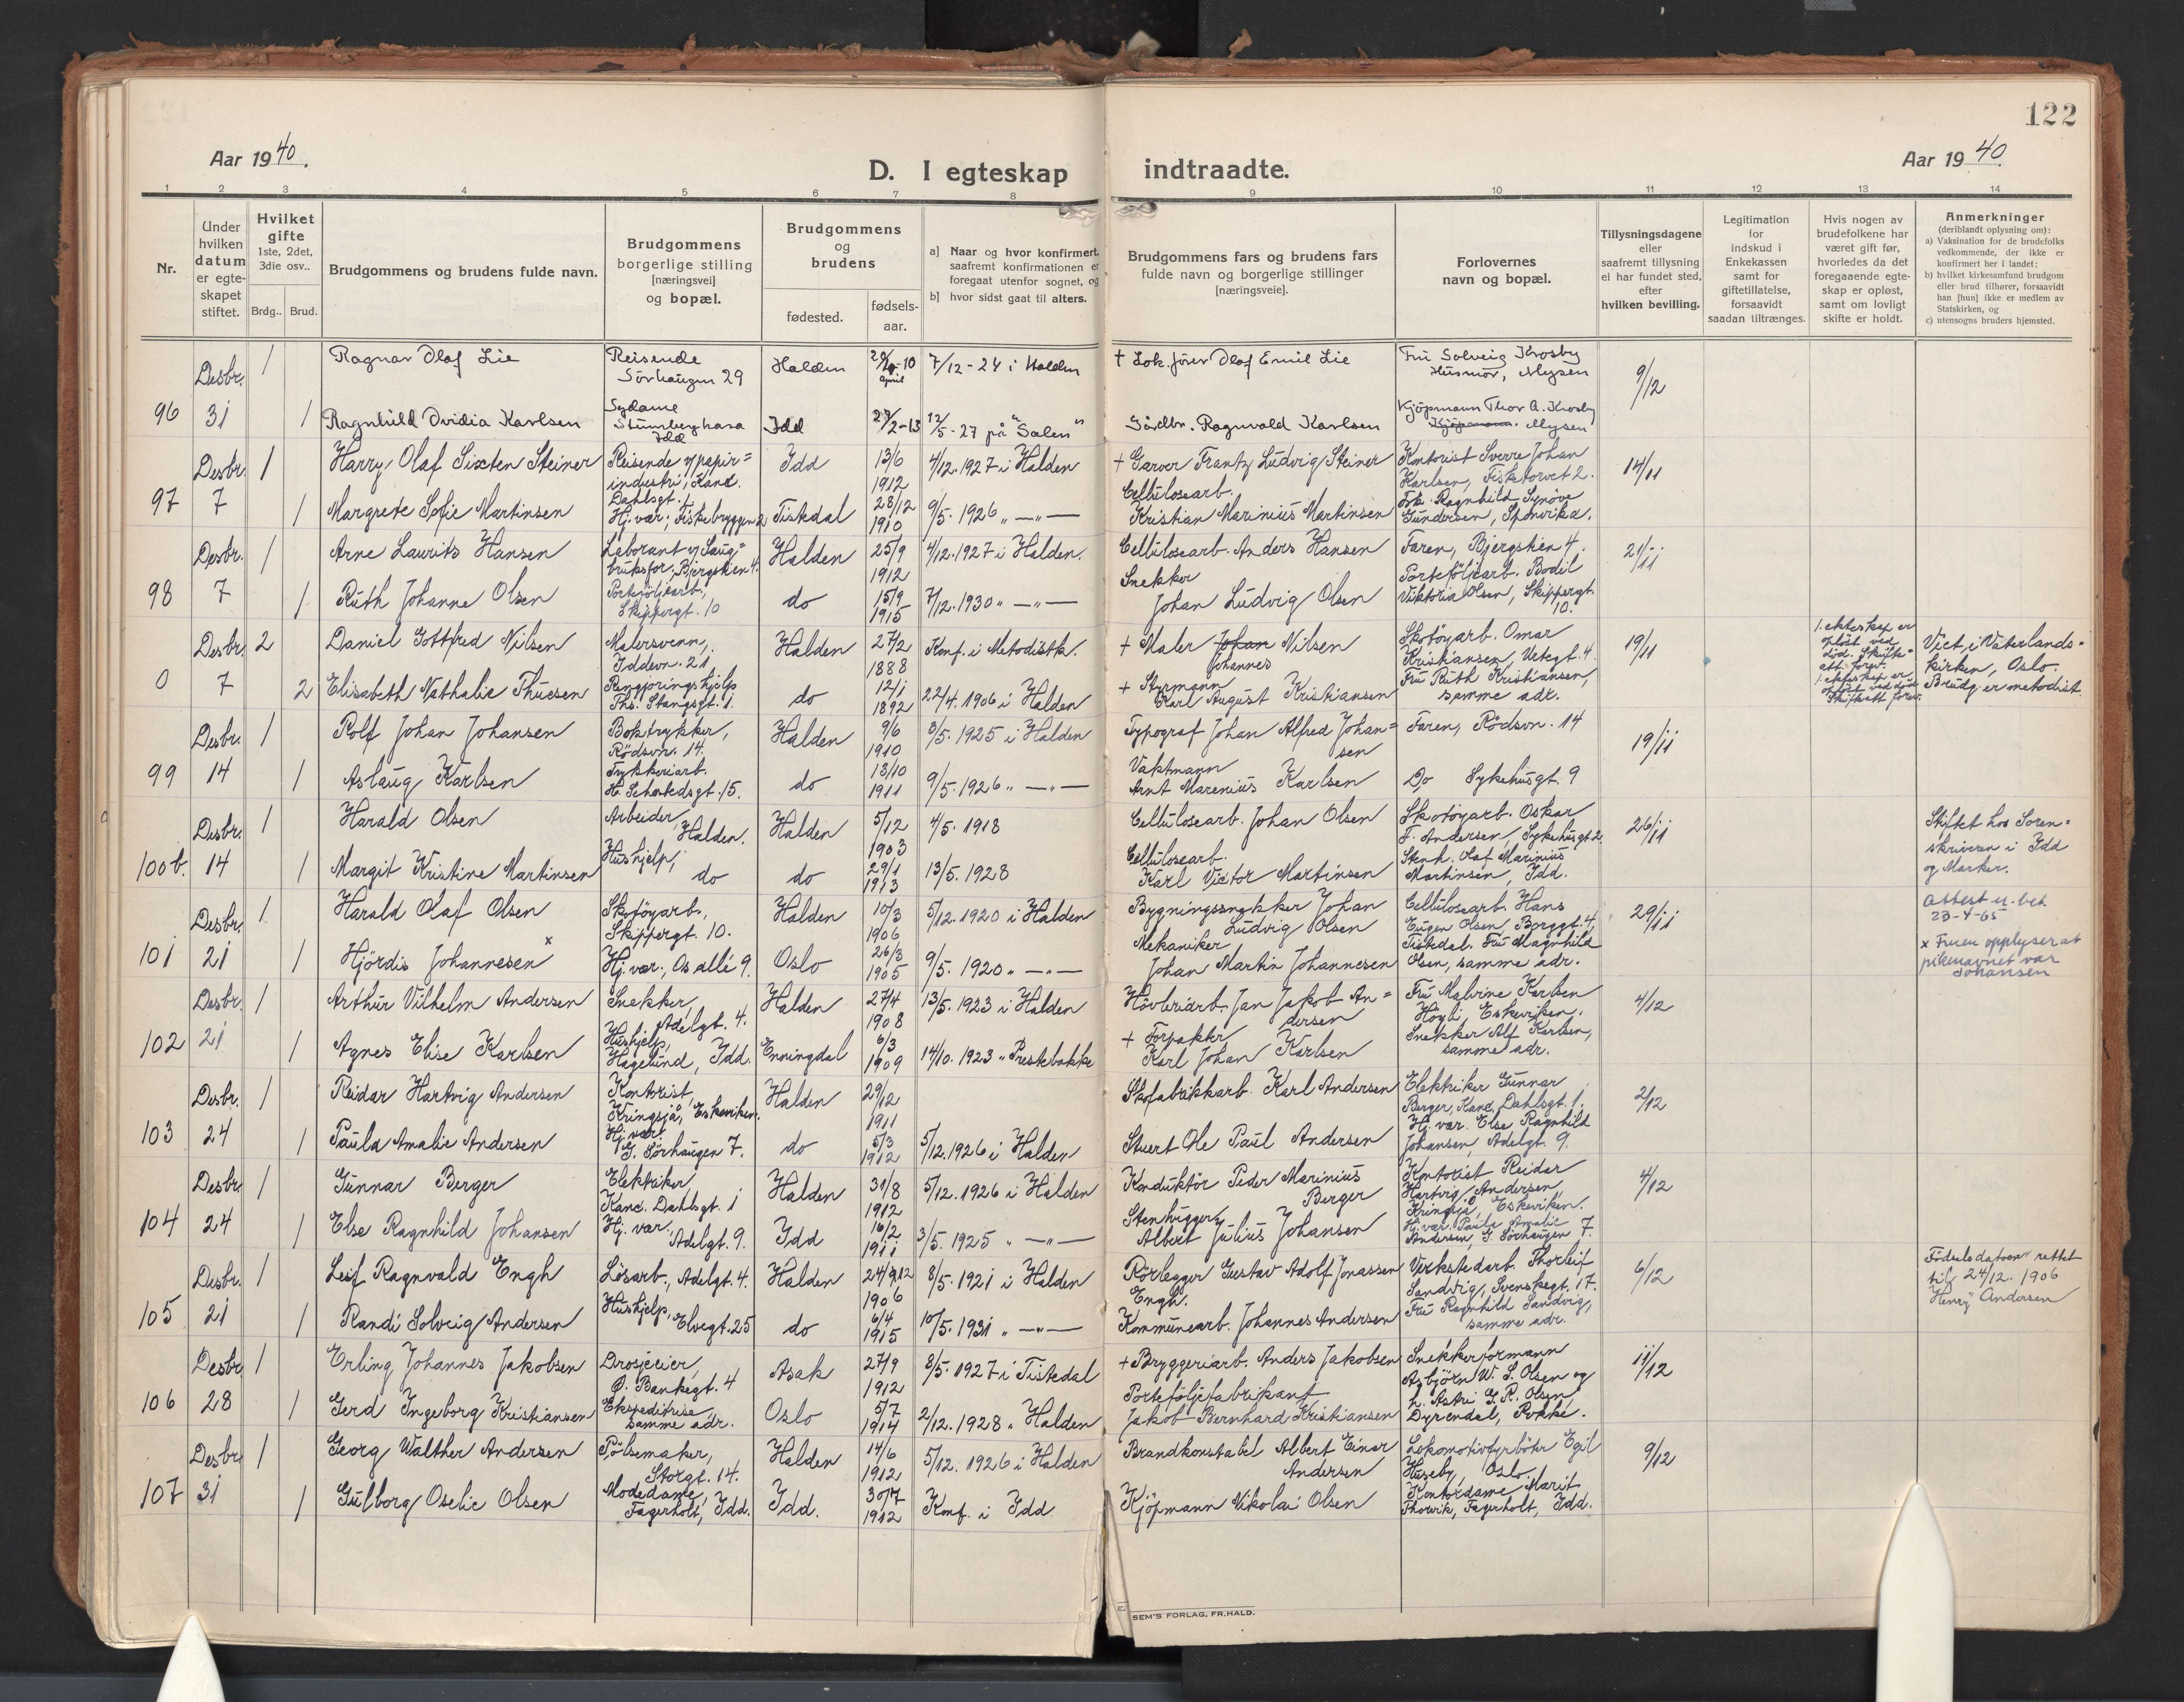 122
Aar 1940.
D. I egteskap indtraadte.
Aar 1940.
1 2 3 4 5 6 7 8 9 10 11 12 13 14
Nr.
Under hvilken datum er egte-skapet stiftet.
Hvilket gifte 1ste, 2det, 3die osv..
Brdg.. Brud.
Brudgommens og brudens fulde navn.
Brudgommens borgerlige stilling [næringsvei] og bopæl.
Brudgommens og brudens
fødested.
fødsels-aar.
a] Naar og hvor konfirmert, saafremt konfirmationen er foregaat utenfor sognet, og
b] hvor sidst gaat til alters.
Brudgommens fars og brudens fars fulde navn og borgerlige stillinger [næringsveie].
Forlovernes navn og bopæl.
Tillysningsdagene eller saafremt tillysning ei har fundet sted, efter hvilken bevilling.
Legitimation for indskud i Enkekassen samt for giftetillatelse, forsaavidt saadan tiltrænges.
Hvis nogen av brudefolkene har været gift før, hvorledes da det foregaaende egte-skap er opløst, samt om lovligt skifte er holdt.
Anmerkninger (deriblandt oplysning om):
a) Vaksination for de brudefolks vedkommende, der ikke er konfirmert her i landet;
b) hvilket kirkesamfund brudgom eller brud tilhører, forsaavidt han [hun] ikke er medlem av Statskirken, og
c) utensogns bruders hjemsted.
Desbr. 1 Ragnar Olaf Lie Reisende Sörhaugen 29 Halden april 7/12-24 i Halden + Lok.förer Olaf Emil Lie Fru Solveig Krosby Husmor, Mysen 9/12
96 31 1 Ragnhild Ovidia Karlsen Sydame Stumberghasa Idd Idd 27/2-13 12/5-27 på "Salen" Gårdbr. Ragnvald Karlsen Kjöpmann Thor A. Krosby Kjöpmann. Mysen
Desbr. 1 Harry Olaf Sixten Steiner Reisende v/papir= industri, Kanc. Dahlsgt. 1 Idd 13/6 1912 4/12.1927 i Halden + Garver Frantz Ludvig Steiner Kontorist Sverre Johan Karlsen, Fisketorvet 2. 14/11
97 7 1 Margrete Sofie Martinsen Hj. vær; Fiskebryggen 2 Tistedal 28/12 1910 9/5.1926 " —"— Cellulosearb. Kristian Marinius Martinsen Frk. Ragnhild Synöve Gundersen, Sponvika.
Desbr. 1 Arne Laurits Hansen Laborant v/Saug= bruksfor., Bjergstien 4. Halden 25/9 1912 4/12.1927 i Halden. Cellulosearb. Anders Hansen Faren, Bjergstien 4. 21/11
98 7 1 Ruth Johanne Olsen Porteföljearb., Skippergt. 10 do 15/9 1915 7/12.1930 " —"— Snekker Johan Ludvig Olsen Porteföljearb. Bodil Viktoria Olsen, Skippergt. 10.
Desbr. 2 Daniel Gottfred Nilsen Malersvenn, Iddevn. 21 Halden 27/2 1888 Konf. i Metodistk. + Maler Johan Nilsen Johannes Skotöyarb. Omar Kristiansen, Vetegt. 4. 19/11 1. ekteskap er oplöst ved död. Skifte= att. forev. Viet i Vaterlands= kirken, Oslo.
0 7 2 Elisabeth Nathalie Thuesen Rengjöringshjelp Ths. Stangsgt. 1. do 12/1 1892 22/4.1906 i Halden + Styrmann Karl August Kristiansen Fru Ruth Kristiansen, samme adr. 1. ekteskap er oplöst ved död. Skifteatt. forev. Brudg. er metodist.
Desbr. 1 Rolf Johan Johansen Boktrykker, Rödsvn. 14. Halden 9/6 1910 3/5.1925 i Halden Typograf Johan Alfred Johan= sen Faren, Rödsvn. 14 19/11
99 14 1 Aslaug Karlsen Trykkeriarb. H. Schultedsgt. 15. do 13/10 1911 9/5.1926 " —"— Vaktmann Arnt Marenius Karlsen Do Sykehusgt. 9
Desbr. 1 Harald Olsen Arbeider, Halden. Halden 5/12 1903 4/5.1918 Cellulosearb. Johan Olsen Skotöyarb. Oskar F. Andersen, Sykehusgt. 2. 26/11 Stiftet hos Soren= skriveren i Idd og Marker.
100b. 14 1 Margit Kristine Martinsen Hushjelp, do do 29/1 1913 13/5.1928 Cellulosearb. Karl Victor Martinsen Stenh. Olaf Marinius Martinsen, Idd.
Desbr. 1. Harald Olaf Olsen Skotöyarb., Skippergt. 10. Halden 10/3 1906 5/12.1920 i Halden Bygningssnekker Johan Ludvig Olsen Cellulosearb. Hans Eugen Olsen, Borggt. 4, 29/11 Attest u. bet. 23-4-65
101 21 1 Hjördis Johannesen x Hj. vær., Os allé 9. Oslo 26/3 1905 9/5.1920 " —"— Mekaniker Johan Martin Johannesen Tistedal. Fru Magnhild Olsen, samme adr. x Fruen opplyser at pikenavnet var Johansen
Desbr. 1 Arthur Vilhelm Andersen Snekker, Adelgt. 4. Halden 27/4 1908 13/5.1923 i Halden Hövleriarb. Jan Jakob An= dersen Fru Malvine Karlsen Högli, Eskeviken. 4/12
102 21 1 Agnes Elise Karlsen Hushjelp, Hagelund, Idd. Enningdal 6/3 1909 14/10.1923 " Prestebakke + Forpakter Karl Johan Karlsen Snekker Alf Karlsen, samme adr.
Desbr. 1 Reidar Hartvig Andersen Kontorist, Kringsjå, Eskeviken. Halden 29/12 1911 Skofabrikkarb. Karl Andersen Elektriker Gunnar Berger, Kanc. Dahlsgt. 1. 2/12
103 24 1 Paula Amalie Andersen Hj. vær G. Sörhaugen 7. do 5/3 1912 5/12.1926 i Halden Stuert Ole Paul Andersen Hj. vær. Else Ragnhild Johansen, Adelgt. 9.
Desbr. 1 Gunnar Berger Elektriker, Kanc. Dahlsgt. 1 Halden 31/8 1912 5/12.1926 i Halden Konduktör Peder Marinius Berger Kontorist Reidar Hartvig Andersen, Kringsjå, Eskeviken. 4/12
104 24 1 Else Ragnhild Johansen Hj. vær., Adelgt. 9. Idd 16/2 1911 3/5.1925 " —"— Stenhugger Albert Julius Johansen Hj. vær. Paula Amalie Andersen, G. Sörhaugen 7.
Desbr. 1 Leif Ragnvald Engh Lösarb., Adelgt. 4. Halden 24/9 12 1906 8/5.1921 i Halden Rörlegger Gustav Adolf Jonassen Engh. Verkstedarb. Thorleif Sandvig, Svenskegt. 17. 6/12 Födselsdatoen rettet til 24/12. 1906 Henry Andersen
105 21 1 Randi Solveig Andersen Hushjelp, Elvegt. 25 do 6/4 1915 10/5.1931 " —"— Kommunearb. Johannes Andersen Fru Ragnhild Sandvig, samme adr.
Desbr. 1 Erling Johannes Jakobsen Drosjeeier, O. Bankegt. 4 Asak 27/9 1912 8/5.1927 i Tistedal + Bryggeriarb. Anders Jakobsen Snekkerformann Asbjörn W. S. Olsen og 11/12
106 28 1 Gerd Ingeborg Kristiansen Ekspeditrise samme adr. Oslo 5/7 1914 2/12.1928 " Halden Porteföljefabrikant Jakob Bernhard Kristiansen h. Astri G. R. Olsen, Dyrendal, Rokke.
Desbr. 1 Georg Walther Andersen Pölsemaker, Storgt. 14. Halden 14/6 1912 5/12.1926 i Halden Brandkonstabel Albert Einar Andersen Lokomotivfyrböter Egil Huseby, Oslo. 9/12
107 31 1 Gulborg Oselie Olsen Modedame, Fagerholt, Idd. Idd. 30/7 1912 Konf. i Idd Kjöpmann Nikolai Olsen Kontordame Marit Thorvik, Fagerholt, Idd.
SEM'S FORLAG, FR.HALD.